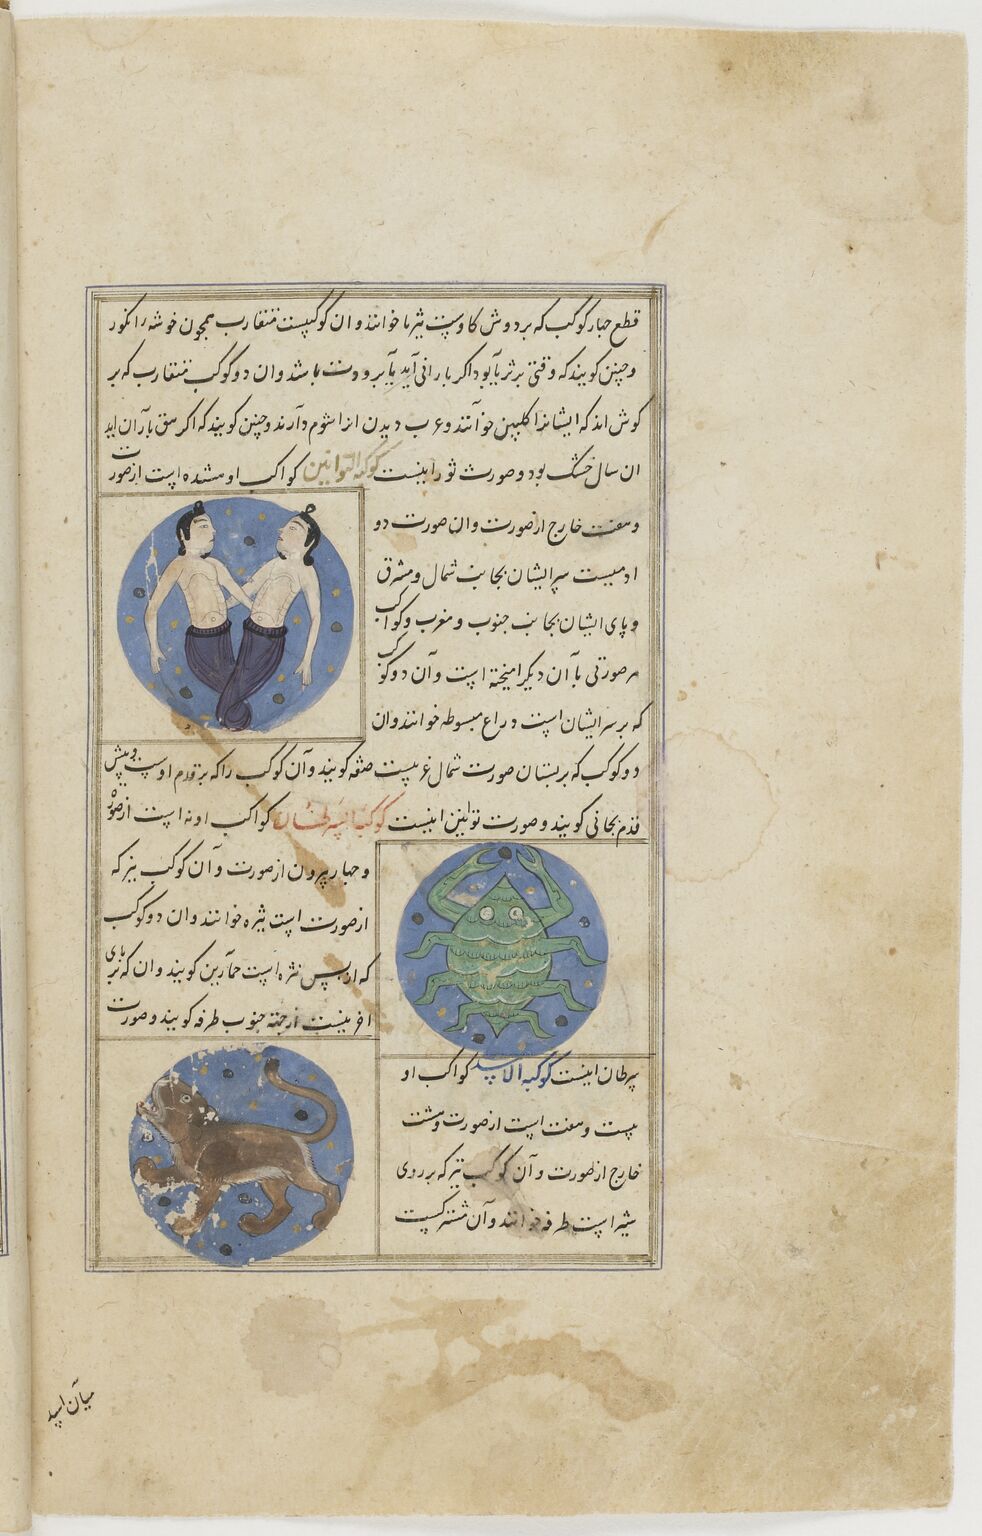 قطع چهار کوکب که بر دوش کاوست ثریا خوانند و ان کوکبیست متقارب همچون خوشه انکور
و چنین کویند که وقتی بر ثریا بود اکر بارانی آید با باشد وان دو کوکب متقارب که بر
کوش اند که ایشانرا کلبین خوانند و عرب دیدن انرا شوم دارند و چنین کویند که اکر باران اید
ان سال خشک بود و صورت ثور اینست کوکبة التوامین کواکب او هشده است از صورت
و هفت خارج از صورت وان صورت دو
ادمیست سر ایشان بجانب شمال و مشرق
و پای ایشان بجانب جنوب و مغرب و کواکب
هر صورتی با آن دیکر امیخته است و آن دو کوکب
که بر سر ایشان است ذراع مبسوطه خوانند وان
دو کوکب که بر پستان صورت شمال کویند و آن کوکب را که بر قدم اوست و پیش
قدم بخاتی کویند و صورت توامین اینست کوکبة السرطان کواکب او نه است از صورة
و چهار بیرون از صورت و آن کوکب نیز که
از صورت است نثره خوانند وان دو کوکب
که از پس نثره است حمارین کویند وان که بر پای
از جهة جنوب طرفه کویند و صورت
سرطان اینست کوکبة الاسد کواکب او
بیست و هفت است از صورت و هشت
خارج از صورت و آن کوکب نیز که بر روی
شیر است طرفه خوانند و آن
میان اسد